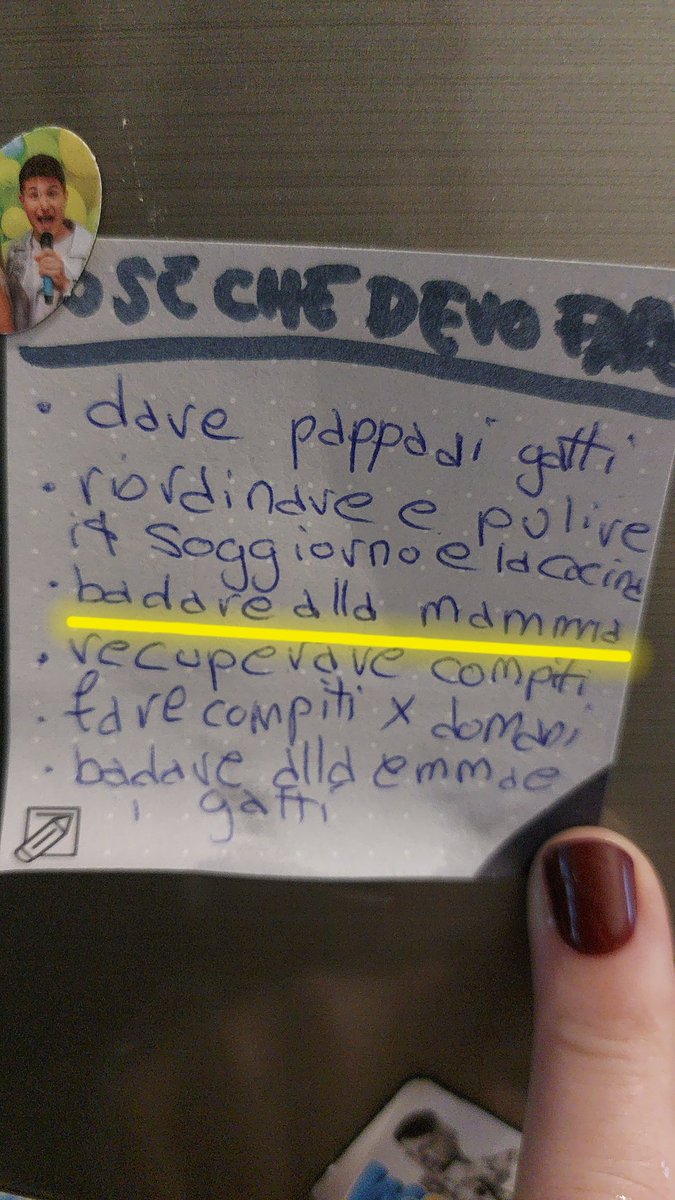 OSE CHE DEVO FARE
• dare pappa ai gatti
• riordinare e pulire
il soggiorno e la cucina
• badare alla mamma
• recuperare compiti
• fare compiti x domani
• badare alla emma e
i gatti